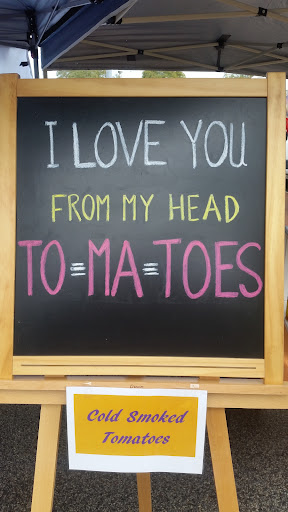 I LOVE YOU
FROM MY HEAD
TO=MA=TOES
Cold Smoked
Tomatoes